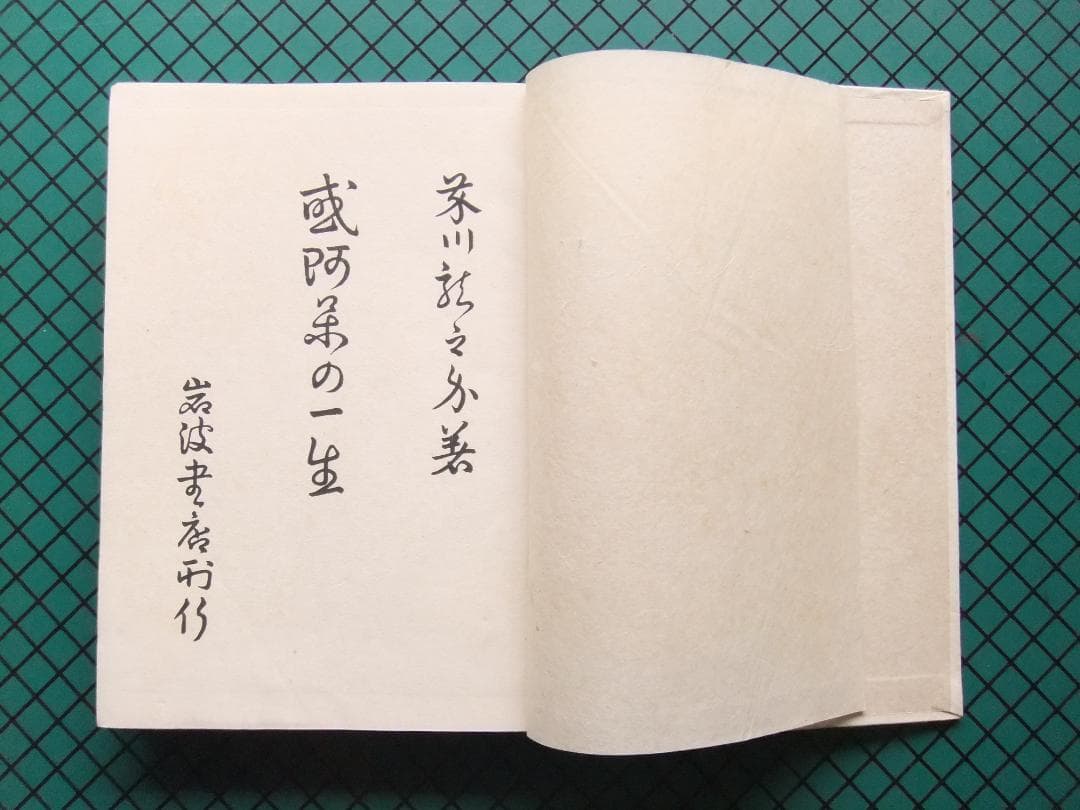 芥川龍之介著
或阿呆の一生
岩波書店刊行